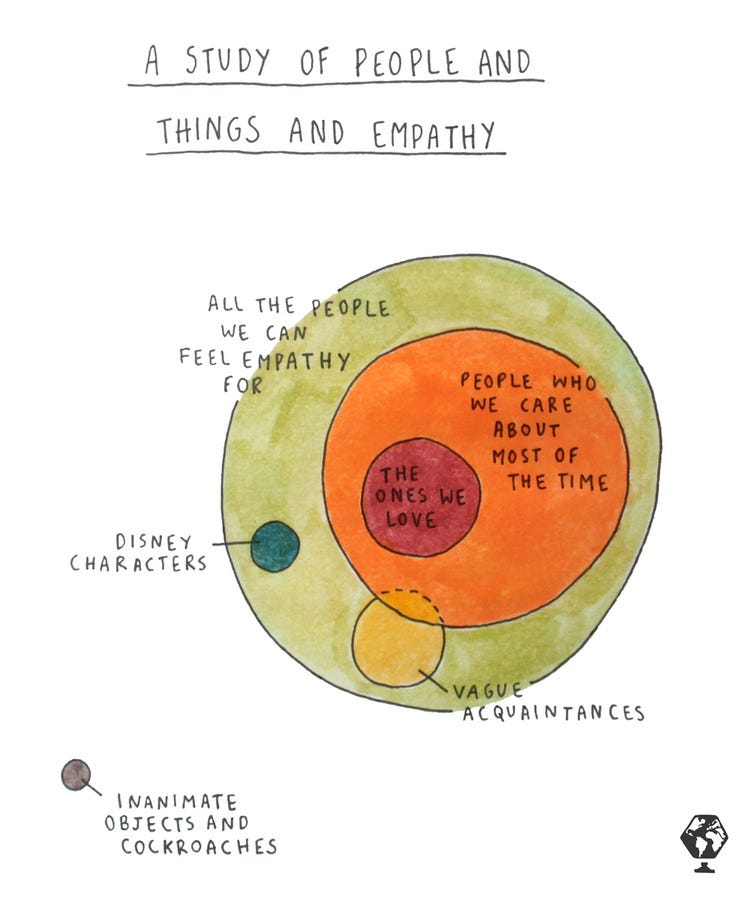 A STUDY OF PEOPLE AND
THINGS AND EMPATHY
ALL THE PEOPLE
WE CAN
FEEL EMPATHY
FOR
PEOPLE WHO
WE CARE
ABOUT
MOST OF
THE TIME
THE
ONES WE
LOVE
DISNEY
CHARACTERS
VAGUE
ACQUAINTANCES
INANIMATE
OBJECTS AND
COCKROACHES